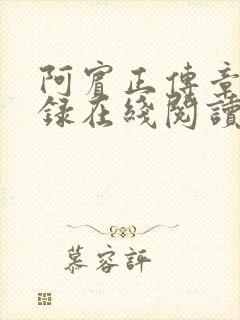 阿賓正傳章
錄在綫閱讀
慕容評